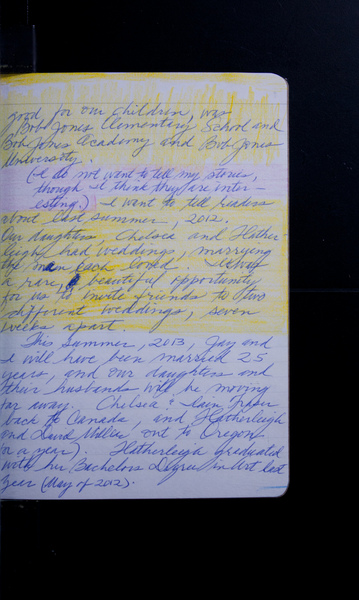 good for our children, was
Bob Jones Elementary School and
Bob Jones Academy and Bob Jones
University.
(I do not want to tell my stories,
though I think they are inter-
esting.) I want to tell readers
about last summer, 2012.
Our daughters, Chelsea and Hather-
leigh had weddings, marrying
the man each loved. It was
a rare, beautiful opportunity
for us to invite friends to two
different weddings, seven
weeks apart.
This Summer, 2013, Jay and
I will have been married 25
years, and our daughters and
their husbands will be moving
far away. Chelsea & Iain Fraser
back to Canada, and Hatherleigh
and David Miller out to Oregon
for a year). Hatherleigh graduated
with her Bachelors Degree in Art last
year (May of 2012).